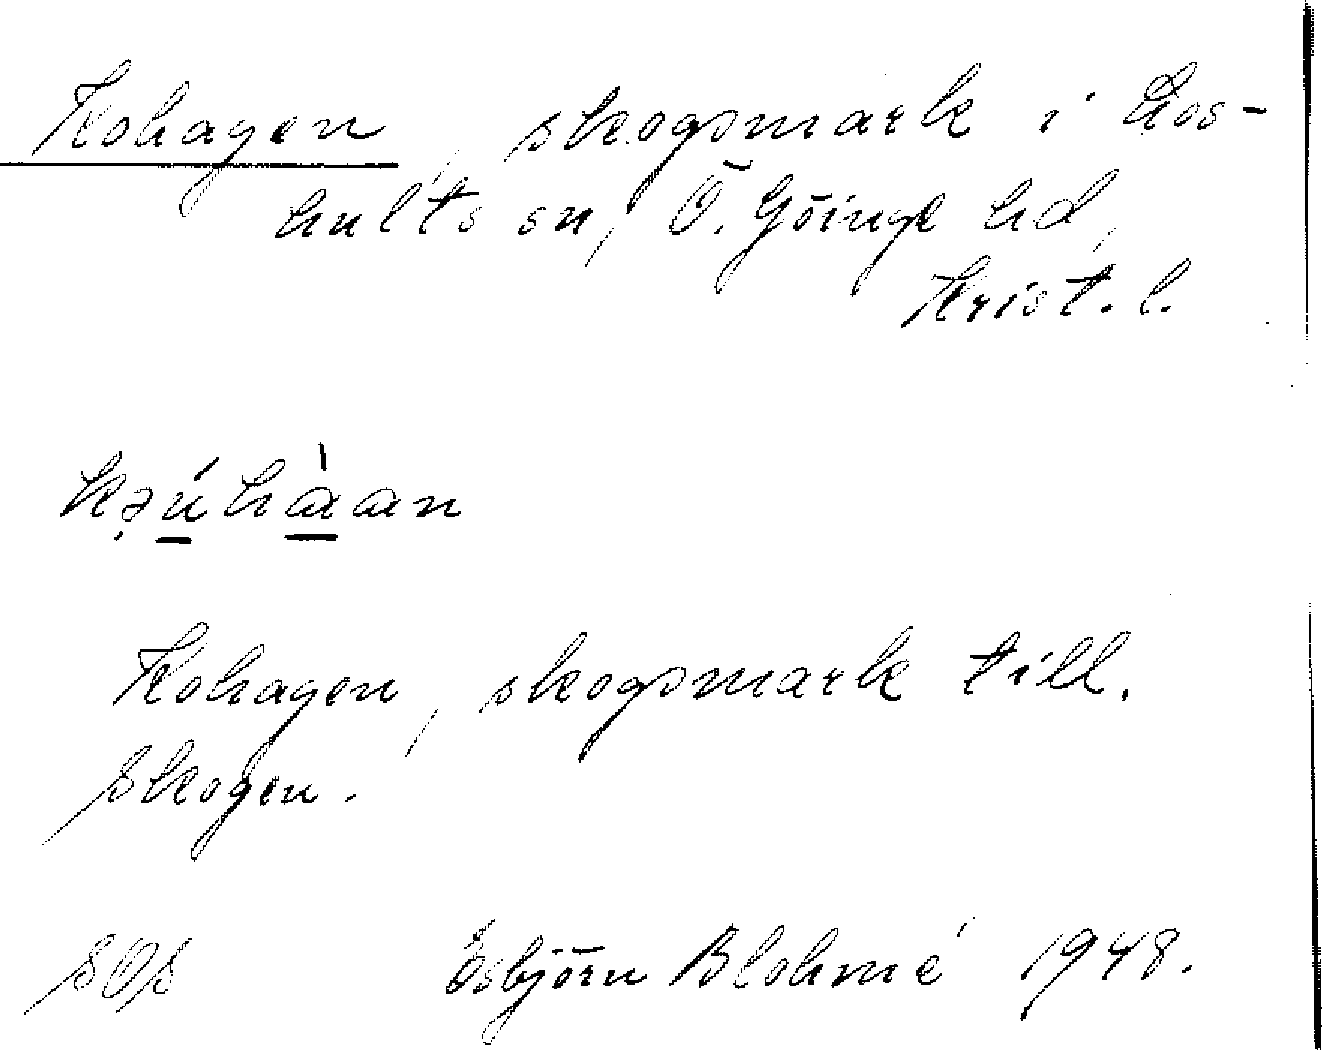 Kohagen, skogsmark i Los-
hults sn, Ö. Göinge hd,
Krist. l.
kə̣úhàan
Kohagen, skogsmark till.
Skogen.
SOS Esbjörn Blohmé 1948.